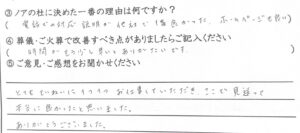 ③ノアの杜に決めた一番の理由は何ですか?
(電話での対応、説明が他社で1番良かった、ホームページも良い)
④葬儀・ご火葬で改善すべき点がありましたらご記入ください
(時間がもう少し早いとありがたいです。)
⑤ご意見・ご感想をお聞かせください
とてもていねいに1つ1つお仕事していただき、ここで見送って
本当に良かったと思いました。
ありがとうございました。